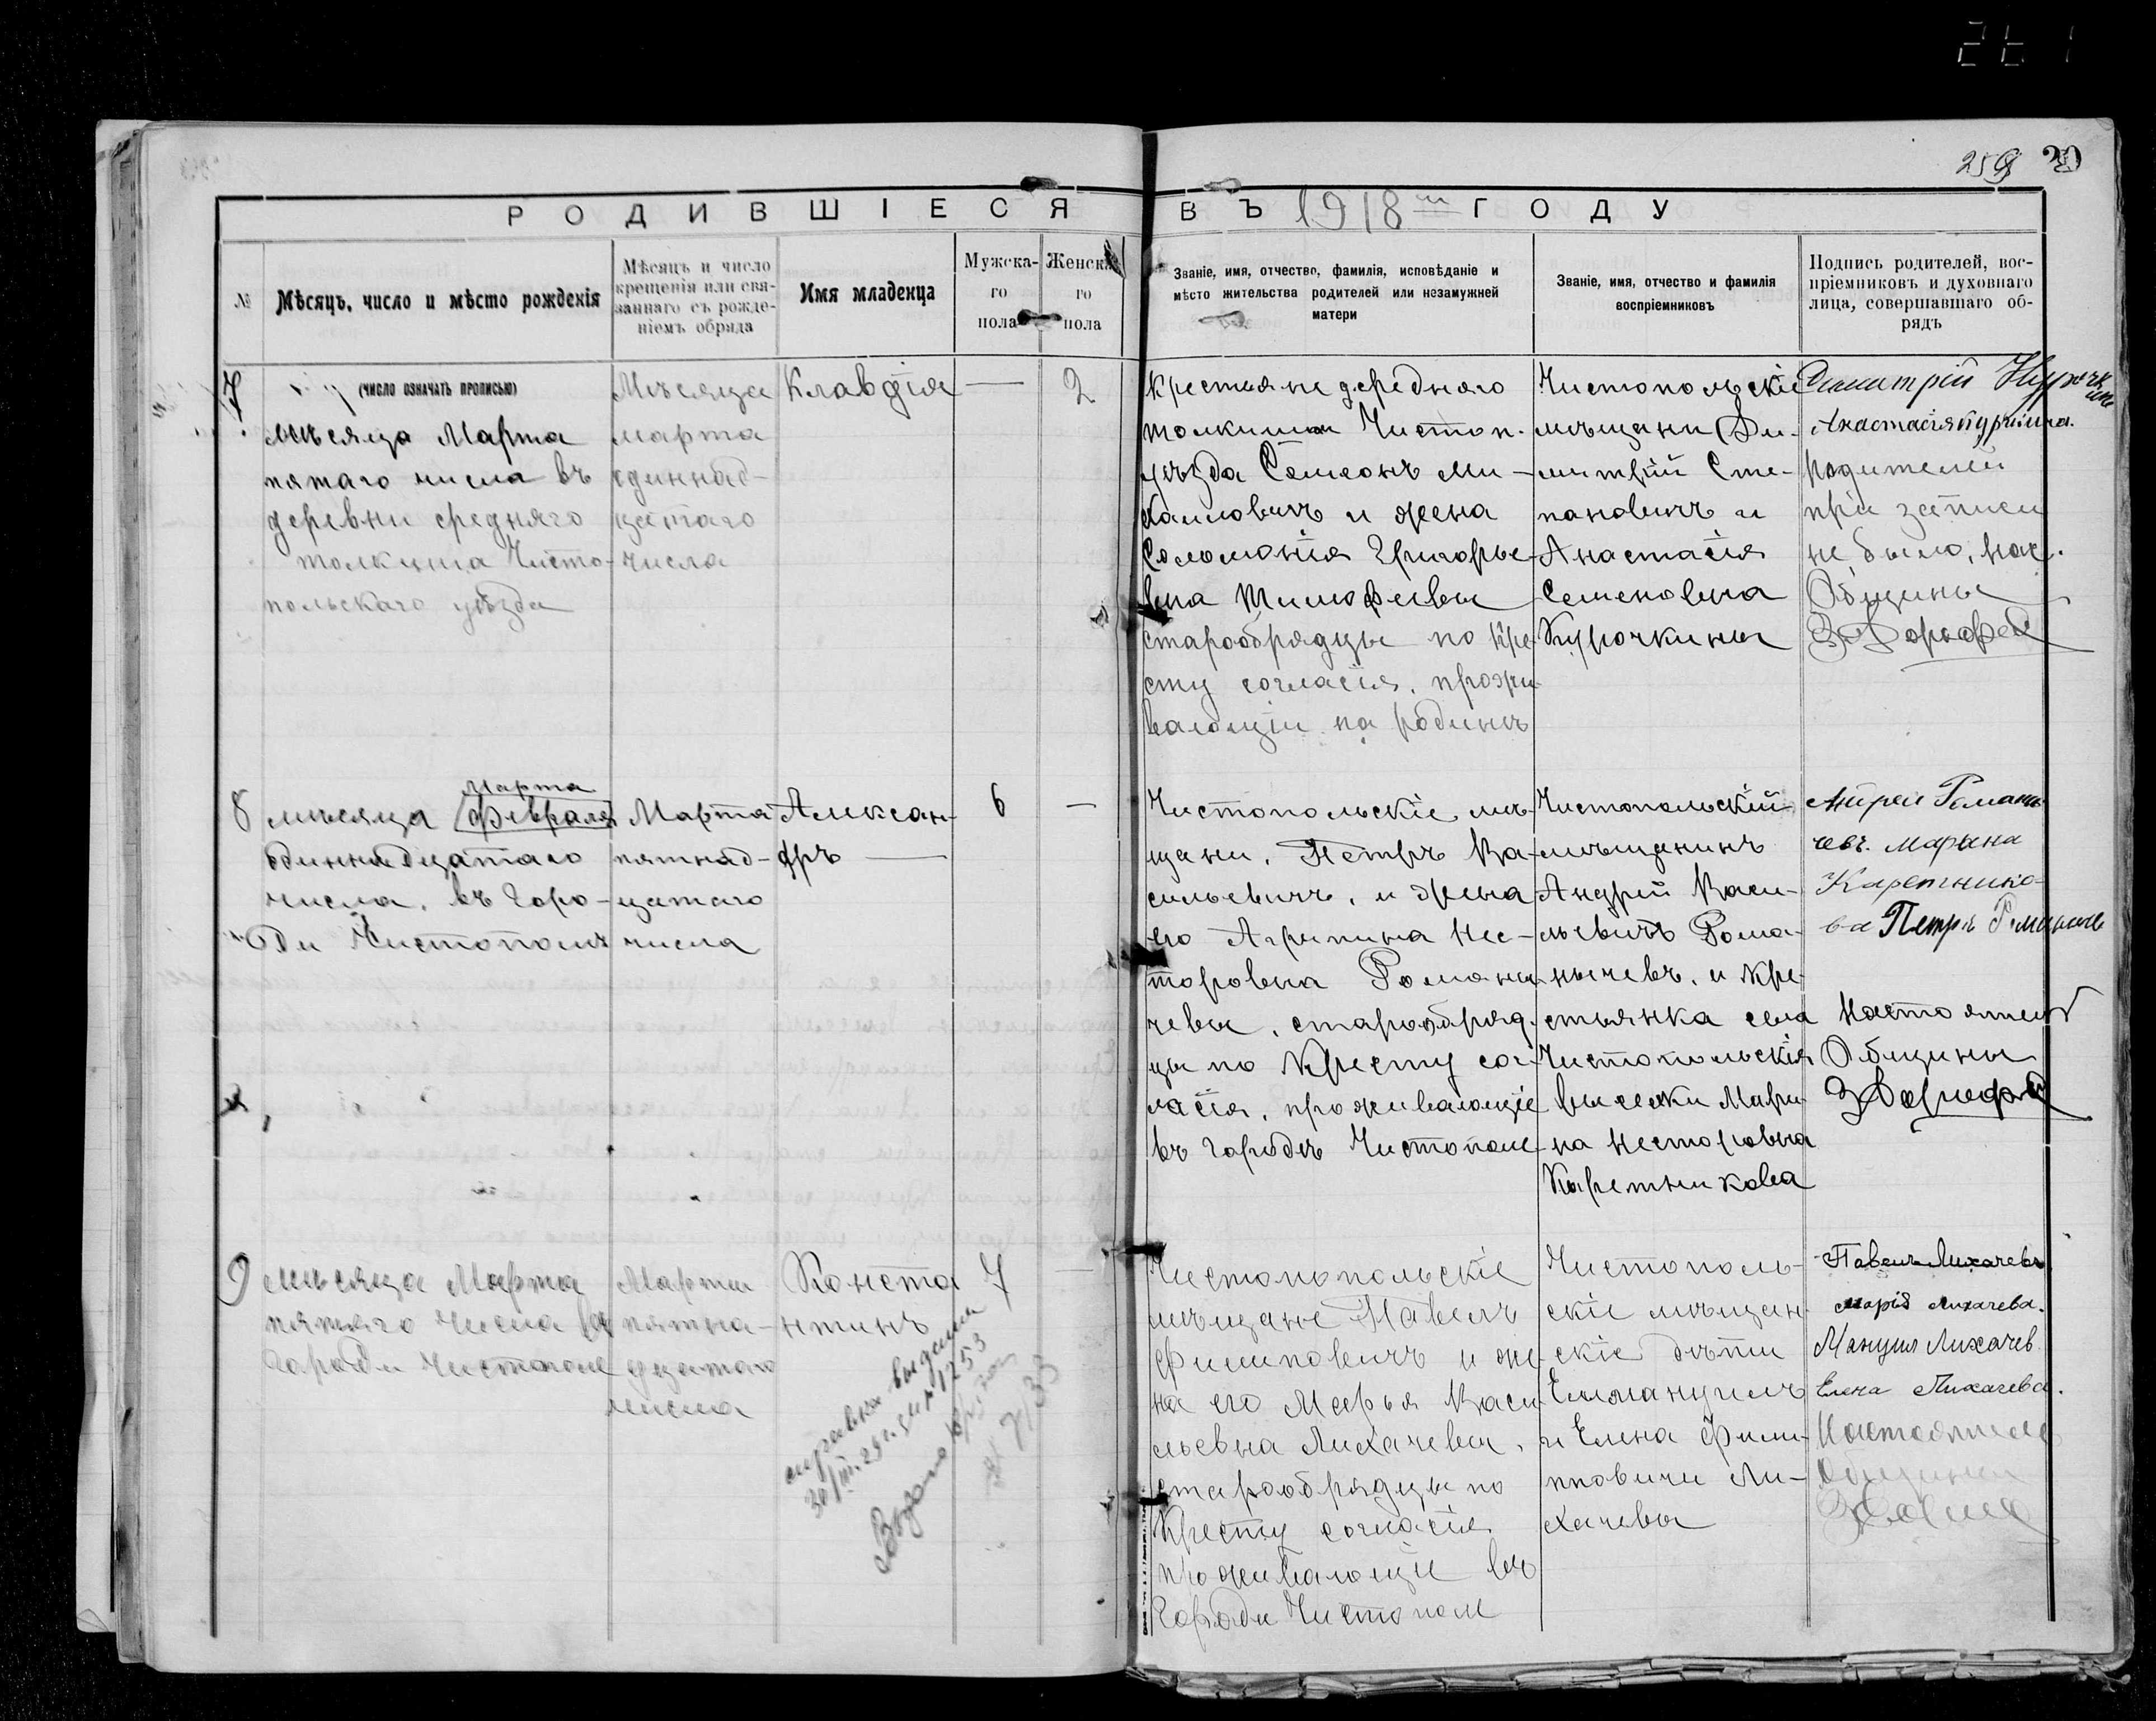 259 20
РОДИВШІЕСЯ ВЪ 1918 ГОДУ
№
Мѣсяцъ, число и мѣсто рожденія
Мѣсяцъ и число
крещенія или свя-
заннаго съ рожде-
ніемъ обряда
Имя младенца
Мужска-
го
пола
Женска
го
пола
Званіе, имя, отчество, фамилія, исповѣданіе и
мѣсто жительства родителей или незамужней
матери
Званіе, имя, отчество и фамилія
воспріемниковъ
Подпись родителей, вос-
пріемниковъ и духовнаго
лица, совершавшаго об-
рядъ
7
(число означать прописью)
мѣсяца Марта
пятаго числа въ
деревни средняго
толкиша Чисто-
польскаго уѣзда
Мѣсяца
марта
единнад-
цатаго
числа
Клавдія
—
2
Крестьяне д средняго
толкиша Чистоп.
уѣзда Семеонъ Ми-
хаиловичъ и жена
Соломонія Григорье-
вна Тимофеевы
старообрядцы по Кре-
сту согласія, прожи-
вающіи на родинѣ
Чистопольскіе
мѣщани Ди-
митрій Сте-
пановичъ и
Анастасія
Семеновна
Курочкины
Димитрій Курочк
ин
Анастасія Курчкина.
Родителей
при записи
не было, нас.
Общины
8
Марта
мѣсяца (февраля)
единнадцатаго
числа, въ Горо-
ди Чистополѣ
Марта
пятнад-
цатаго
числа
Алексан-
дръ —
6
—
Чистопольскіе мѣ-
щани, Петръ Ва-
сильевичъ, и жена
его Агрипина Нес-
торовна Романы-
чевы, старообряд-
цы по Кресту сог-
ласія, проживающіе
въ городѣ Чистополе
Чистопольскій
мѣщанинъ
Андрей Васи-
льевичъ Рома-
нычевъ, и Кре-
стьянка села
Чистопольскія
выселки Мари-
на Несторовна
Каретникова
Андреи Романы
чевъ. Марина
Каретнико-
ва Петръ Романычев
Настоятель
Общины
9
мѣсяца Марта
пятаго числа въ
городи Чистополе
Марта
пятна-
дцатаго
числа
Конста
нтинъ
7
—
справка выдана
30/III.29 г. за № 1253
Чистопопольскіе
мѣщане Павелъ
Филиповичъ и же-
на его Марья Васи-
льевна Лихачевы,
старообрядцы по
Кресту согласія
проживающіе въ
городи Чистополе
Чистополь-
скіе мѣщан-
скіе дѣти
Еммануилъ
и Елена Фили-
пповичи Ли-
хачевы
Павелъ Лихачевъ
Марія Лихачева.
Мануил Лихачев.
Елена Лихачева.
Настоятель
Общины